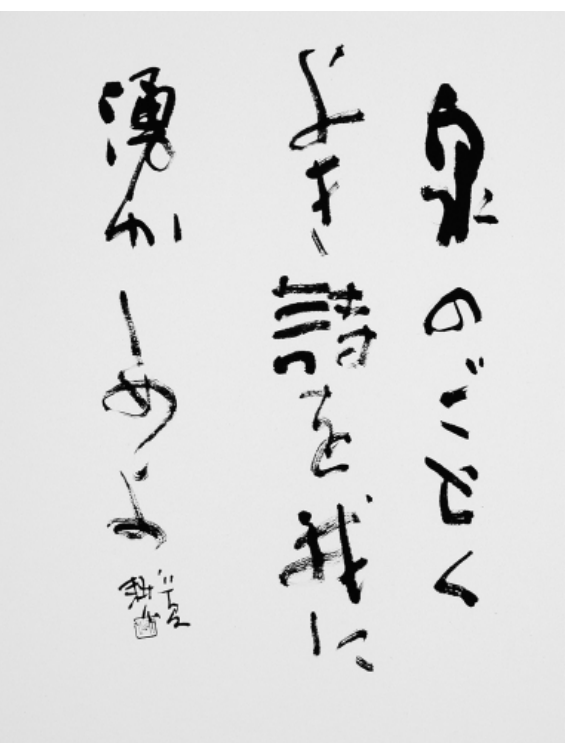 泉のごとく
よき詩を我に
湧かしめよ